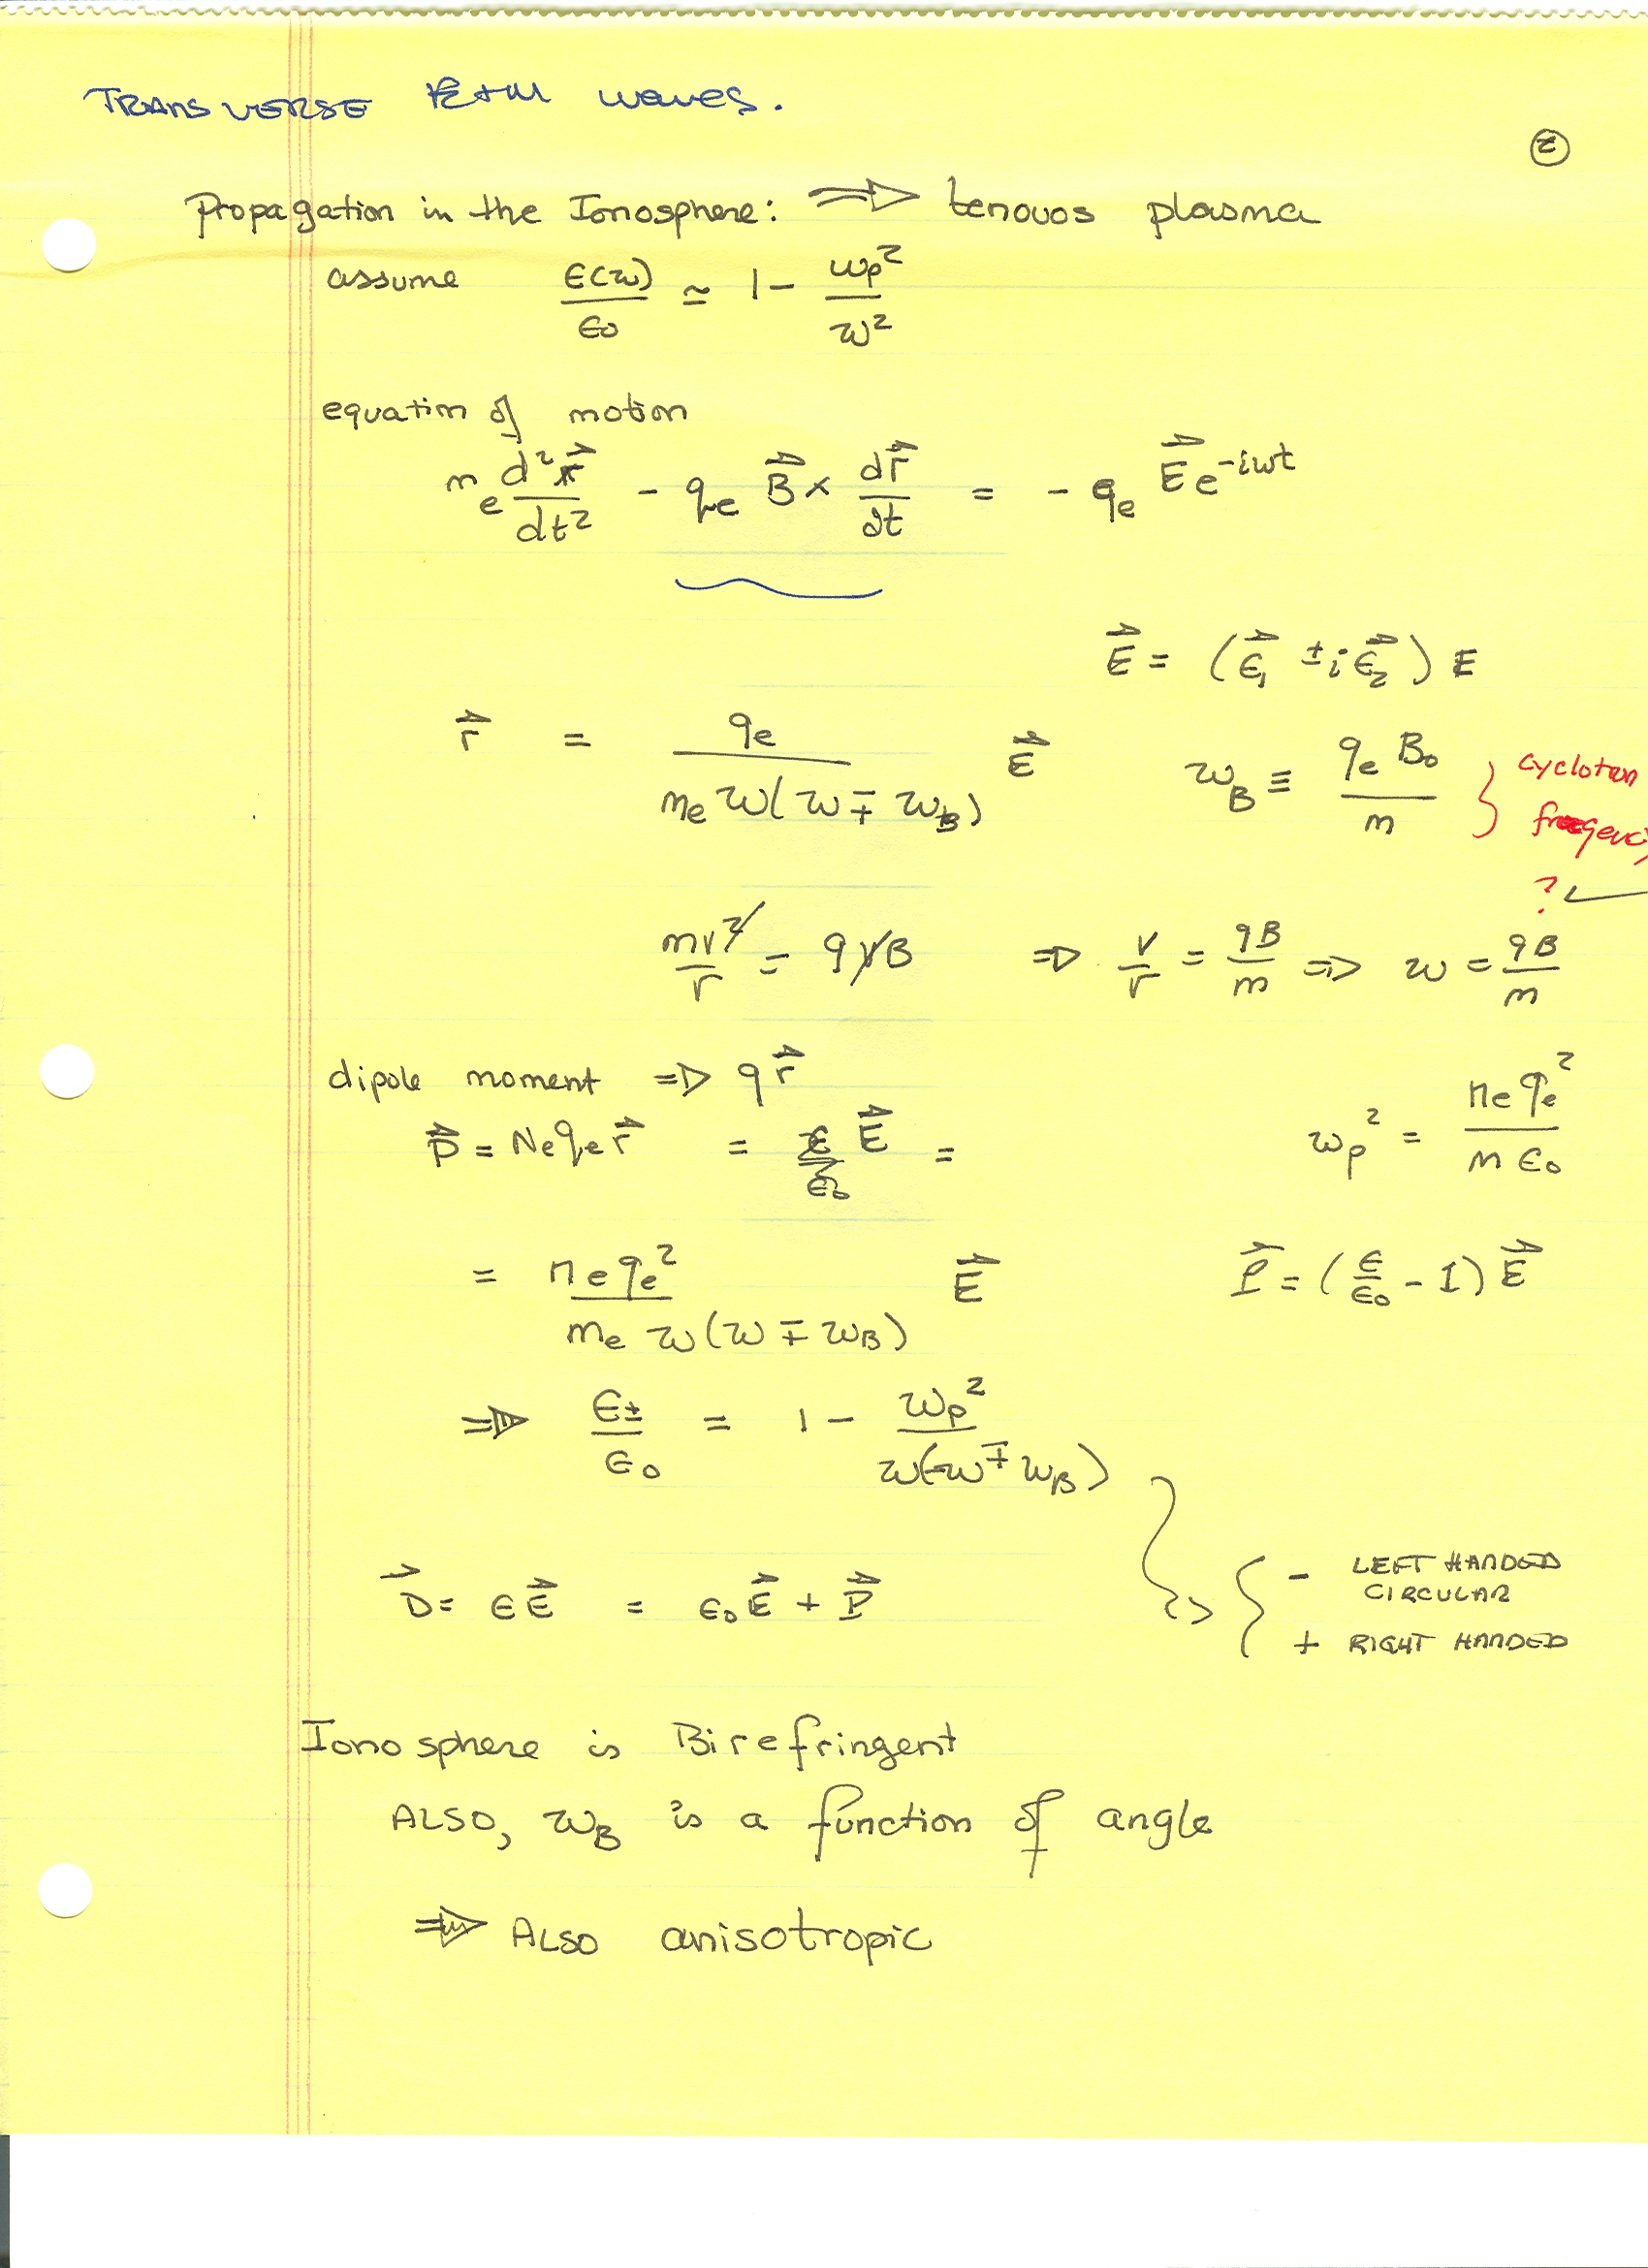 TRANSVERSE E+M waves.
②
Propagation in the Ionosphere: ⇒ tenouos plasma
assume ϵ(ω)/ϵ₀ ≃ 1 - ωp²/ω²
equation of motion
mₑ d²r⃗/dt² - qₑ B⃗ × dr⃗/dt = - qₑ E⃗e^-iωt
E⃗ = (ϵ⃗₁ ± iϵ⃗₂) E
r⃗ = qₑ/(mₑ ω(ω ∓ ω_B)) E⃗ ω_B ≡ qₑB₀/m } cyclotron
?
mv²/r = qvB ⇒ v/r = qB/m ⇒ ω = qB/m
dipole moment ⇒ qr⃗
P⃗ = Nₑqₑr⃗ = ϵ/ϵ₀ E⃗ = ωp² = nₑqₑ²/(m ϵ₀)
= nₑqₑ²/(mₑ ω(ω ∓ ω_B)) E⃗ P⃗ = (ϵ/ϵ₀ - 1) E⃗
⇒ ϵ±/ϵ₀ = 1 - ωp²/(ω(ω ∓ ω_B))
- LEFT HANDED
CIRCULAR
D⃗ = ϵE⃗ = ϵ₀E⃗ + P⃗
+ RIGHT HANDED
Ionosphere is Birefringent
ALSO, ω_B is a function of angle
⇒ ALSO anisotropic